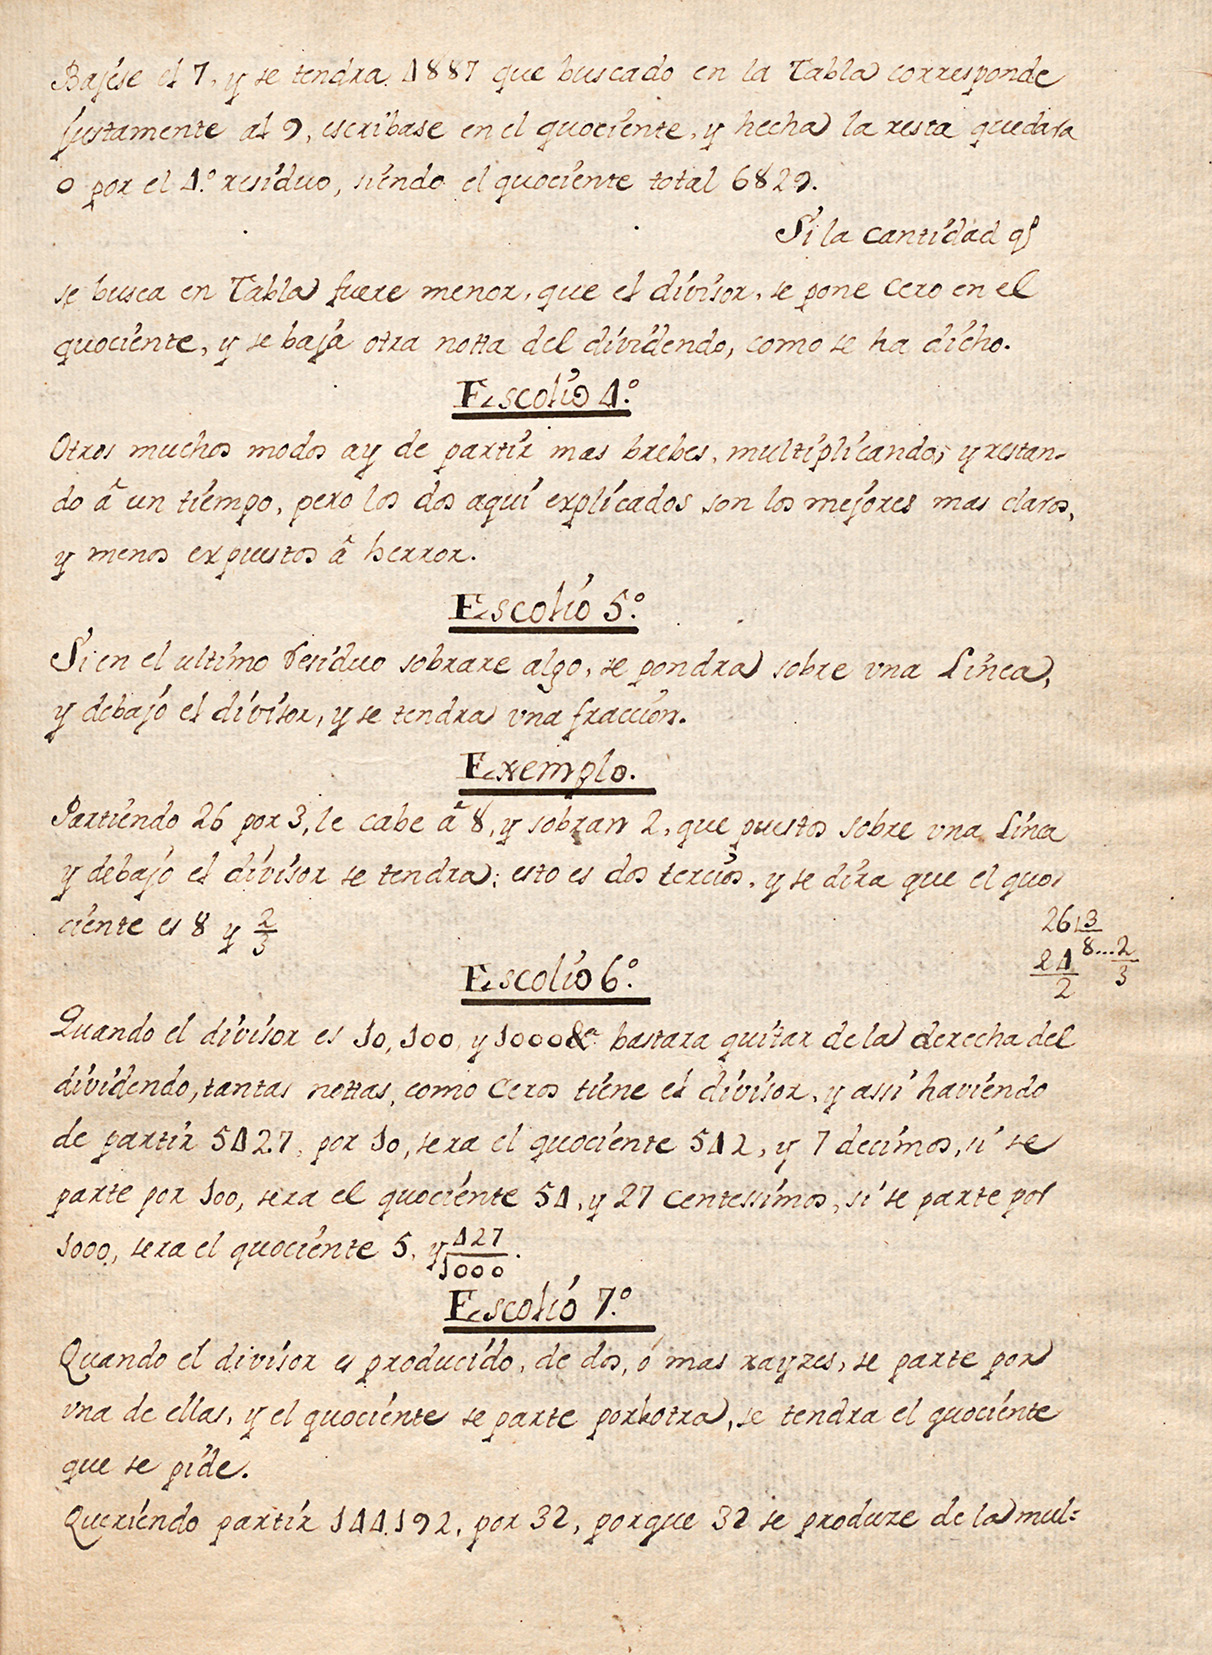 Bajese el 7, y se tendra 4887 que buscado en la Tabla corresponde
justamente al 9, escribase en el quociente, y hecha la resta quedara
0 por el 4.º residuo, siendo el quociente total 6829.
Si la cantidad q.e
se busca en Tabla fuere menor, que el divisor, se pone Cero en el
quociente, y se baja otra notta del dividendo, como se ha dicho.
Escolio 4.º
Otros muchos modos ay de partir mas brebes, multiplicando, y restan-
do â un tiempo, pero los dos aqui explicados son los mejores mas claros,
y menos expuestos â herror.
Escolio 5.º
Si en el ultimo residuo sobrare algo, se pondra sobre vna Linea,
y debajo el divisor, y se tendra vna fraccion.
Exemplo.
Partiendo 26 por 3, le cabe â 8, y sobran 2, que puestos sobre vna Linea
y debajo el divisor se tendra; esto es dos tercios, y se dira que el quo-
ciente es 8 y 2/3
26 3
24 8...2/3
2
Escolio 6.º
Quando el divisor es 10, 100, y 1000 &.a bastara quitar de la derecha del
dividendo, tantas nottas, como Ceros tiene el divisor, y assi haviendo
de partir 5427, por 10, sera el quociente 542, y 7 decimos, si se
parte por 100, sera el quociente 54, y 27 Centessimos, si se parte por
1000, sera el quociente 5, y 427/1000.
Escolio 7.º
Quando el divisor es producido, de dos, ó mas rayzes, se parte por
vna de ellas, y el quociente se parte por la otra, se tendra el quociente
que se pide.
Queriendo partir 144192, por 32, porque 32 se produze de la mul=